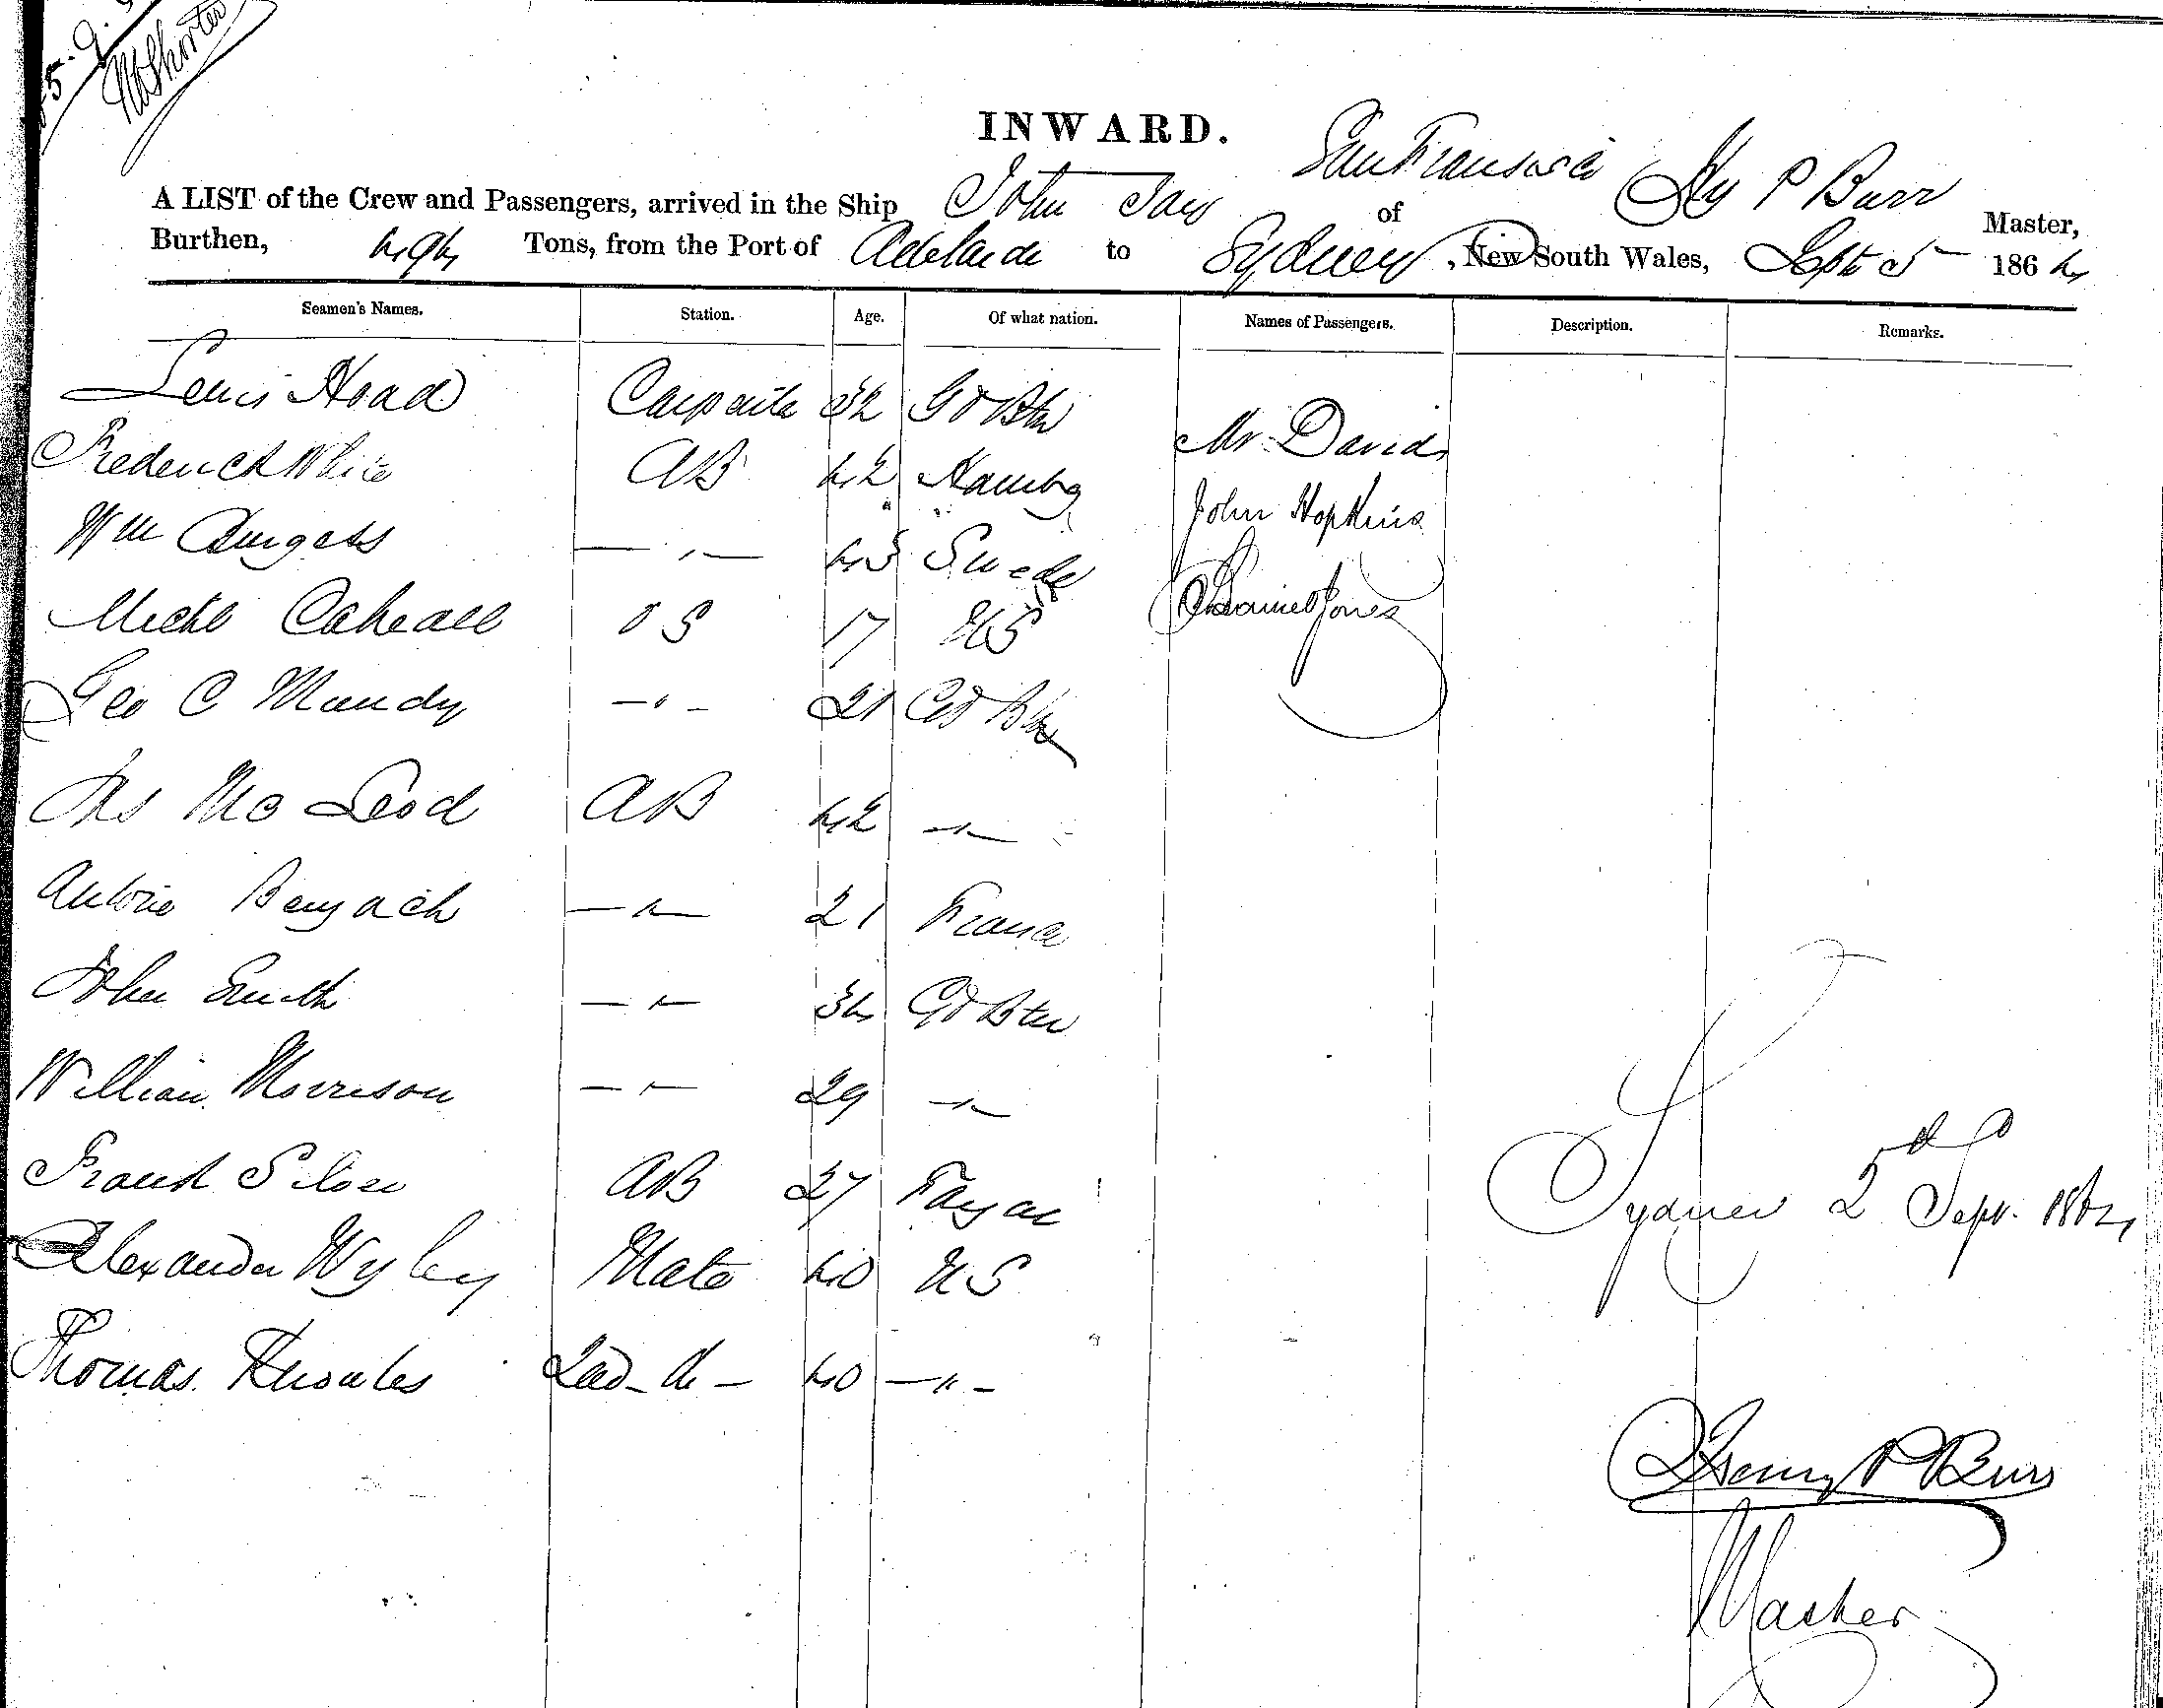 INWARD.
A LIST of the Crew and Passengers, arrived in the Ship John Jay of San Fransisco Hy P Burr Master,
Burthen, 494 Tons, from the Port of Adelaide to Sydney, New South Wales, Sept 5 1864
Seamen's Names. Station. Age. Of what nation. Names of Passengers. Description. Remarks.
Lewis Hoad Carpenter 32 Gt Btn Mr David
Frederick White AB 42 Hambg John Hopkins
Wm Burgess — " — 43 Swede Daniel Jones
Michl Caheall O S 17 US
Geo C Mundy — " — 21 Gt Btn
Jas Mc Leod AB 42 — " —
Antoine — " — 21 France
John Smith — " — 34 Gt Btn
William Morrison — " — 29 — " —
Frank AB 27 Fayal
Sydney 2nd Sept. 1864
Alexander Wyley Mate 40 US
Thomas Knowles 2nd do — 40 — " —
Henry P Burr
Master